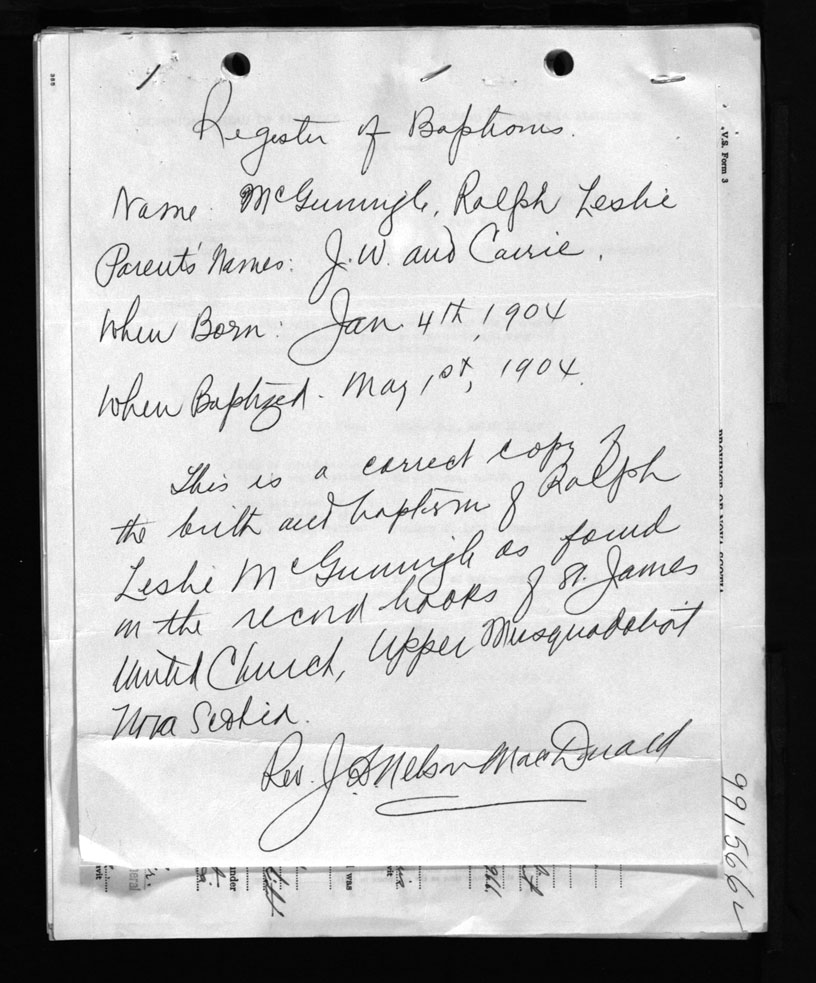 Register of Baptisms.
Name: McGunnigle, Ralph Leslie
Parent's Names: J.W. and Carrie.
When Born: Jan. 4th, 1904
When Baptized. May 1st, 1904.
This is a correct copy of
the birth and baptism of Ralph
Leslie McGunnigle as found
in the record books of St. James
United Church, Upper Musquodoboit
Nova Scotia.
Rev. J. Nelson MacDonald
V.S. Form 3
PROVINCE OF NOVA SCOTIA
under
I was
9915662